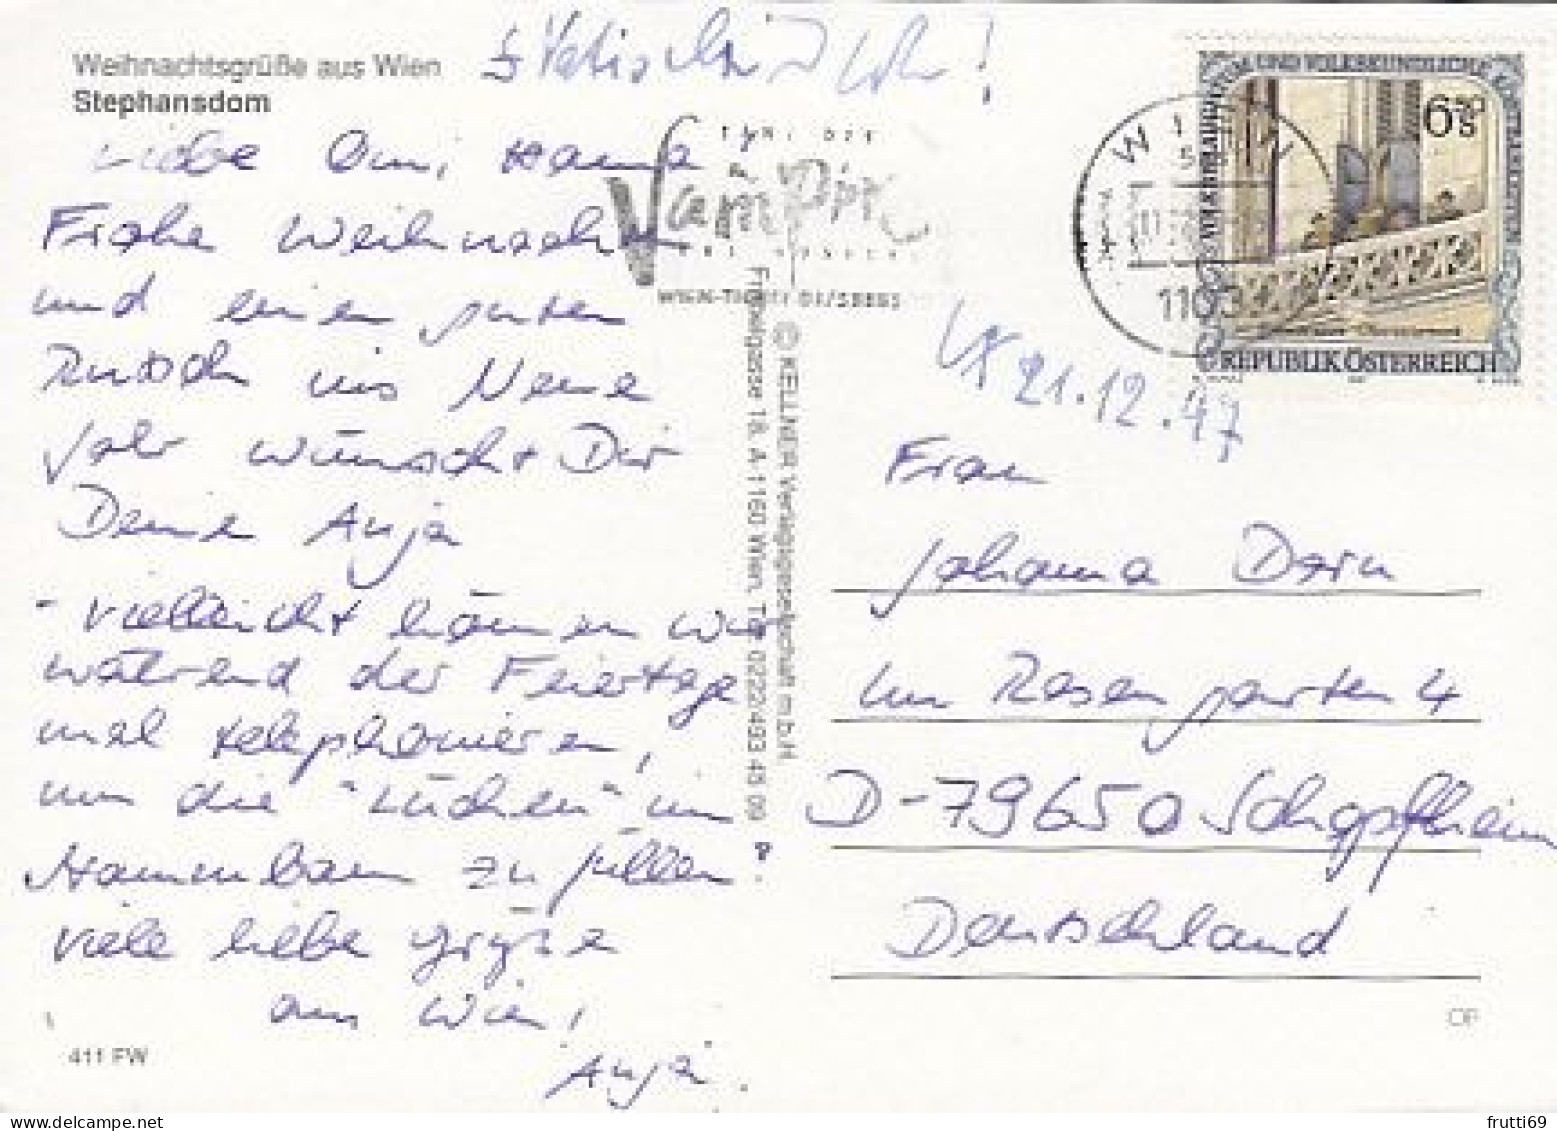 Weihnachtsgrüße aus Wien
Stephansdom
Liebe Omi, Hanna
Frohe Weihnachten
und einen guten
Rutsch ins Neue
Jahr wünscht Dir
Deine Anja
- vielleicht können wir
während der Feiertage
mal telephonieren,
um die "Lücken" im
Stammbaum zu füllen?
viele liebe Grüße
aus Wien,
Anja.
411 FW
© KELLNER Verlagsgesellschaft m.b.H.
Friedelgasse 18, A-1160 Wien, Tel. 0222/493 45 09
TANZ DER
Vampire
WIEN-TICKET 01/58885
WIEN
1103
VOLKSBRAUCHTUM UND VOLKSKUNDLICHE KOSTBARKEITEN
6 50
S
REPUBLIK ÖSTERREICH
21.12.47
Frau
Johanna Dorn
Im Rosengarten 4
D-79650 Schopfheim
Deutschland
frutti69